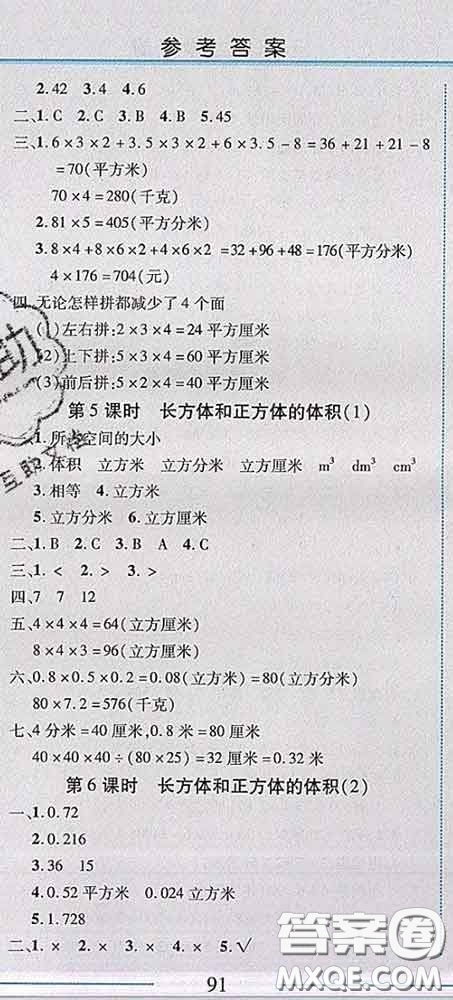 参考答案
2.42 3.4 4.6
二、1.C 2.C 3.B 4.B 5.45
三、1.6×3×2+3.5×3×2+6×3.5-8=36+21+21-8
=70(平方米)
70×4=280(千克)
2.81×5=405(平方分米)
3.8×4+8×6×2+4×6×2=32+96+48=176(平方米)
4×176=704(元)
四、无论怎样拼都减少了4个面
(1)左右拼:2×3×4=24平方厘米
(2)上下拼:5×3×4=60平方厘米
(3)前后拼:5×2×4=40平方厘米
第5课时 长方体和正方体的体积(1)
一、1.所占空间的大小
2.体积 立方米 立方分米 立方厘米 m³ dm³ cm³
3.相等 4.立方米
5.立方分米 6.立方厘米
二、1.B 2.C 3.B A 4.C
三、1.< 2.> 3.>
四、7 7 12
五、4×4×4=64(立方厘米)
8×4×3=96(立方厘米)
六、0.8×0.5×0.2=0.08(立方米)=80(立方分米)
80×7.2=576(千克)
七、4分米=40厘米,0.8米=80厘米
40×40×40÷(80×25)=32厘米=0.32米
第6课时 长方体和正方体的体积(2)
一、1.0.72
2.0.216
3.36 15
4.0.52平方米 0.024立方米
5.1.728
二、1.× 2.× 3.× 4.× 5.√
91
互助文档
答案圈
MXQE.COM